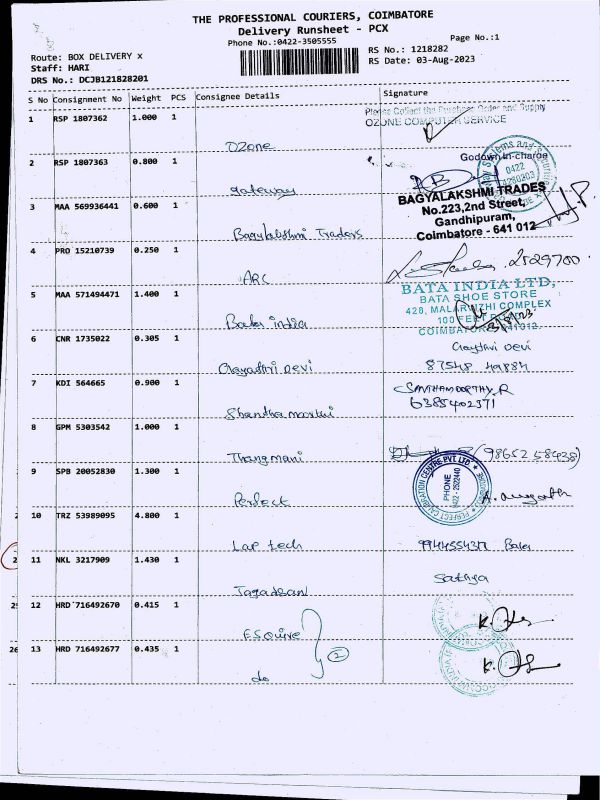 THE PROFESSIONAL COURIERS, COIMBATORE
Delivery Runsheet - PCX
Phone No.:0422-3505555
Page No.:1
Route: BOX DELIVERY x
RS No.: 1218282
Staff: HARI
RS Date: 03-Aug-2023
DRS No.: DCJB121828201
S No Consignment No Weight PCS Consignee Details Signature
1 RSP 1807362 1.000 1
Please Collect the Purchase Order and Supply
OZONE COMPUTER SERVICE
Ozone
2 RSP 1807363 0.800 1
Godown In-charge
0422
gateway
BAGYALAKSHMI TRADES
3 MAA 569936441 0.600 1
No.223,2nd Street,
Gandhipuram,
Coimbatore - 641 012
Bagyalakshmi Traders
4 PRO 15210739 0.250 1
ARC
BATA INDIA LTD,
5 MAA 571494471 1.400 1
BATA SHOE STORE
428, MALARVIZHI COMPLEX
100 FEET
3/8/23
Bata india
COIMBATORE 641012
6 CNR 1735022 0.305 1
Gayathri Devi
Gayathri Devi
87548 49884
7 KDI 564665 0.900 1
SANTHAMOORTHAY.R
6385402371
Shantha moorthi
8 GPM 5303542 1.000 1
Thangmani
(98652 58438)
9 SPB 20052830 1.300 1
PERFECT CALIBRATION CENTRE PVT. LTD
PHONE
0422 - 2522440
Perfect
10 TRZ 53989095 4.800 1
Lap tech
2 11 NKL 3217909 1.430 1
Sathya
12 HRD 716492670 0.415 1
ESquire
2
26 13 HRD 716492677 0.435 1
do